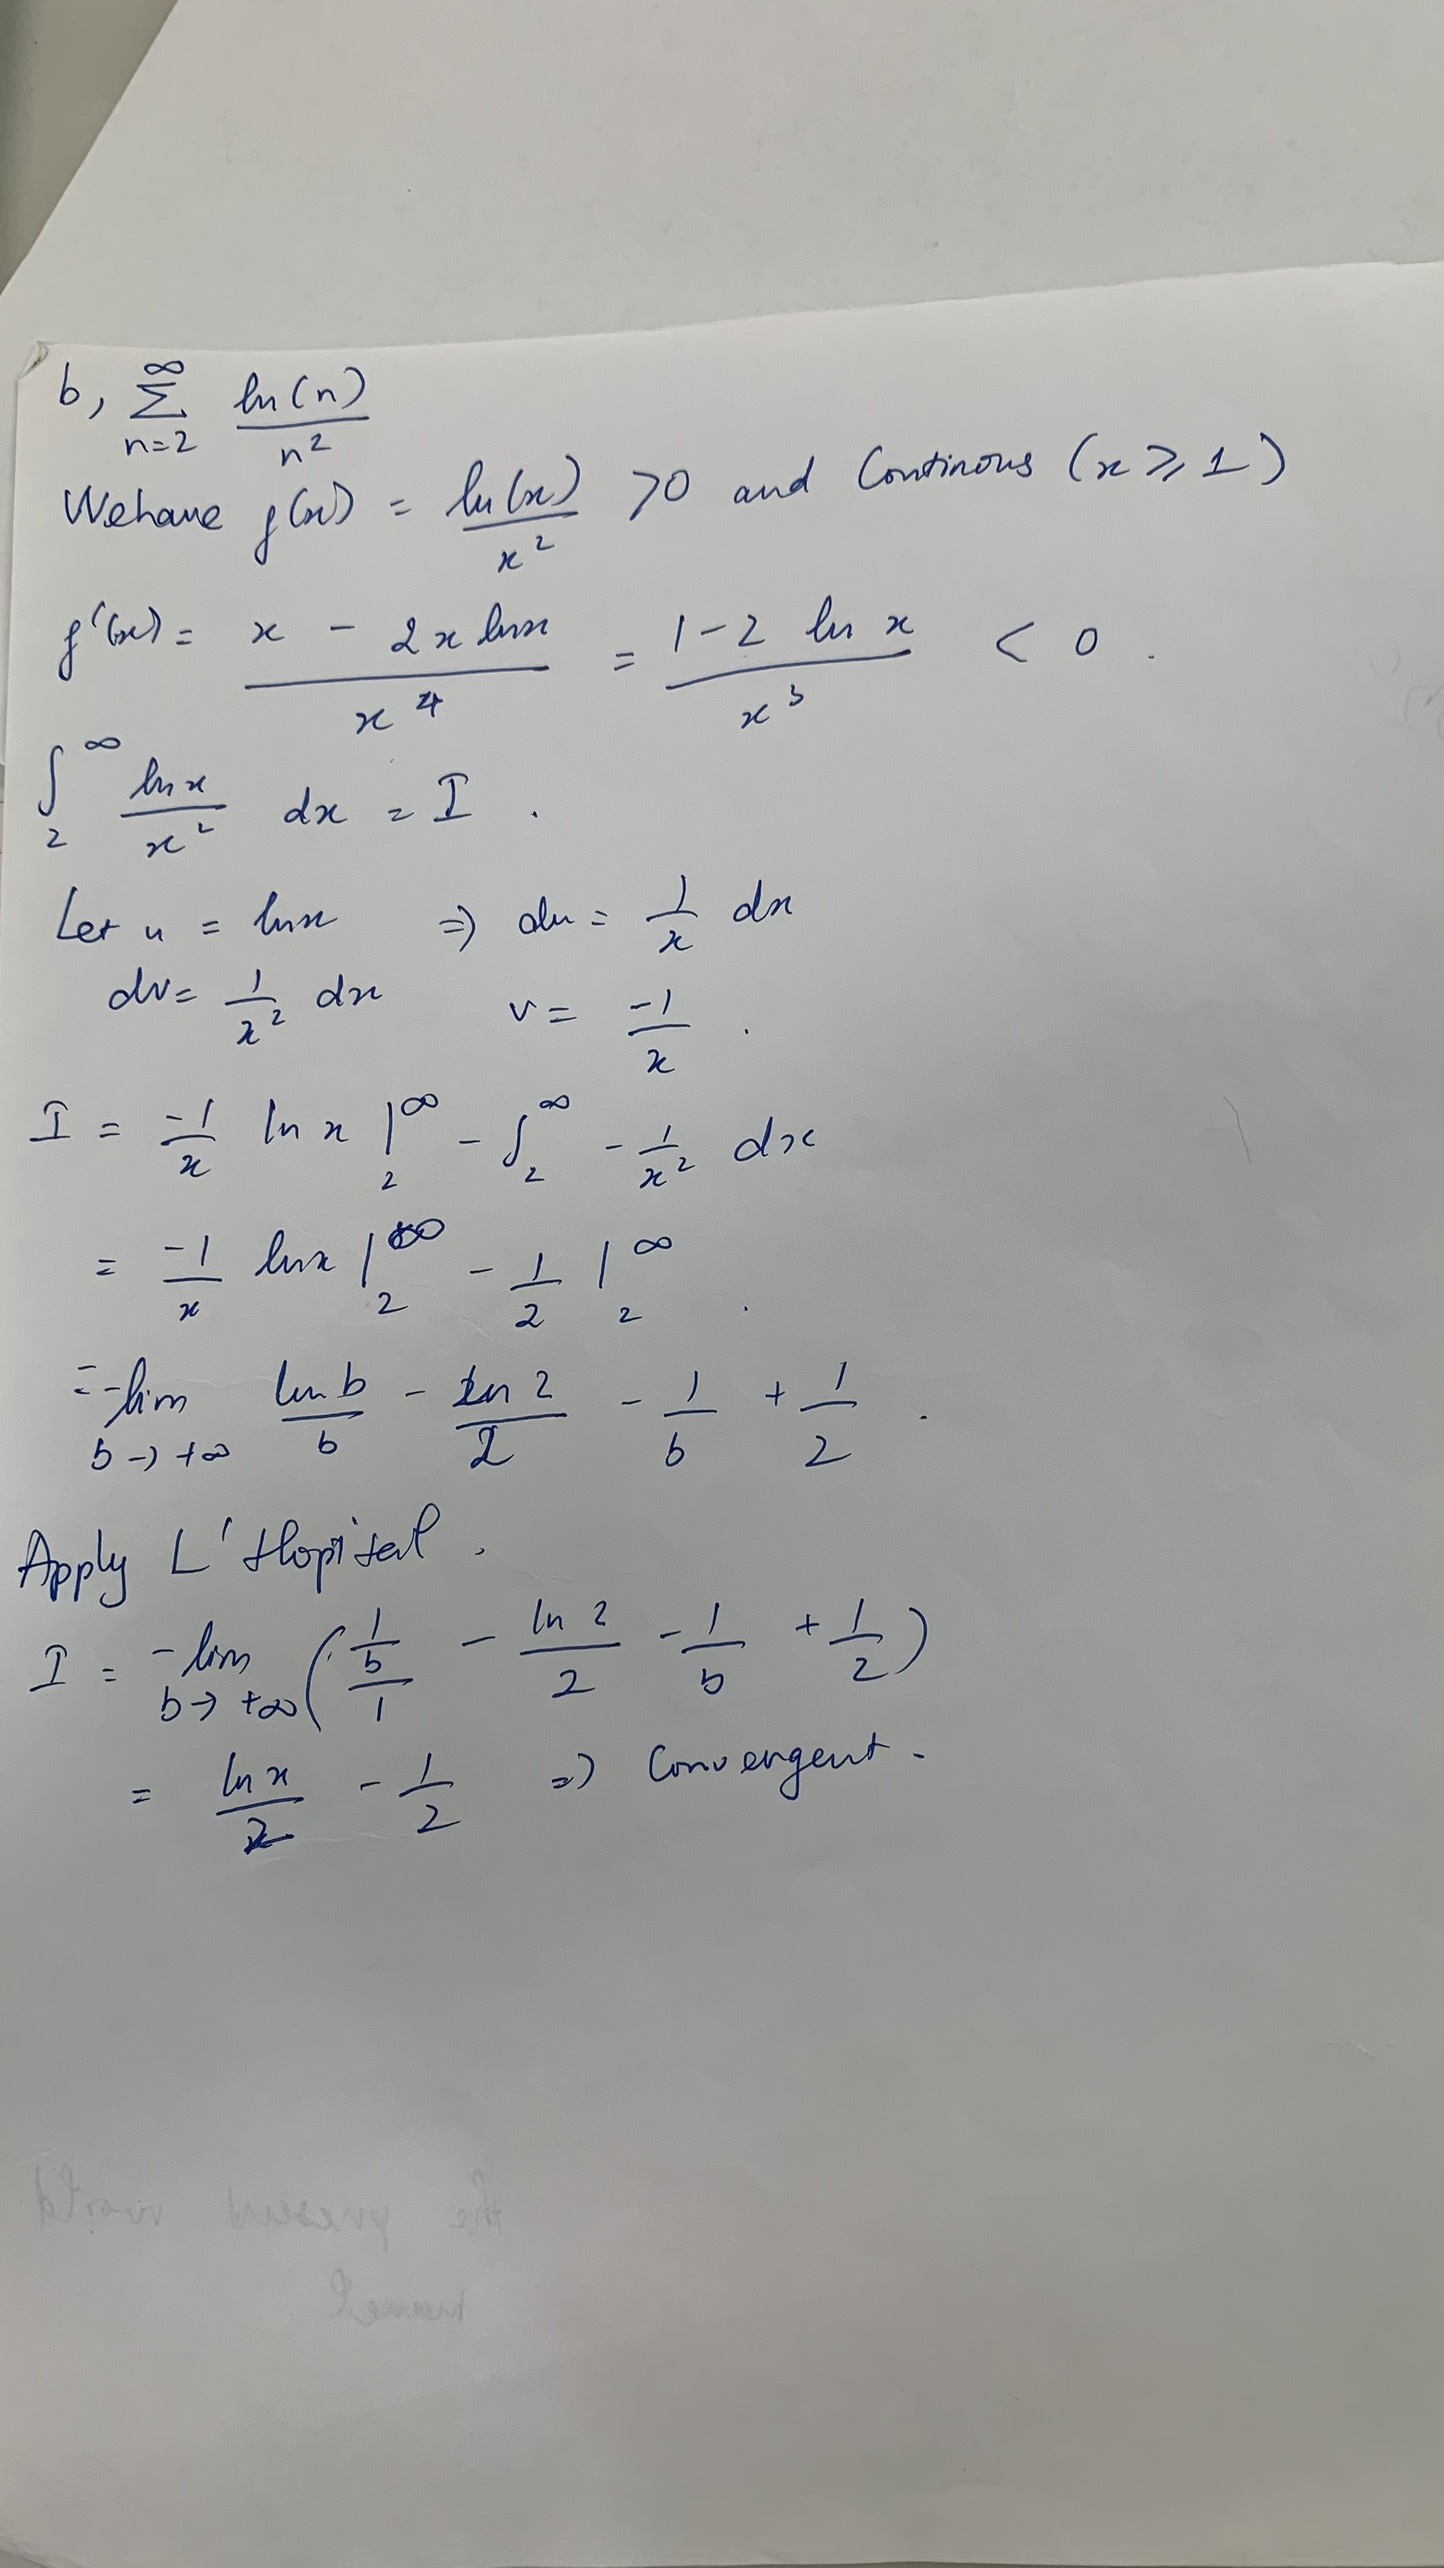 b, ∑_{n=2}^{∞} ln(n)/n²
We have f(x) = ln(x)/x² >0 and Continous (x ⩾ 1)
f'(x) = (x - 2x lnx)/x⁴ = (1-2 ln x)/x³ < 0 .
∫_2^∞ lnx/x² dx = I .
Let u = lnx => du = 1/x dx
dv = 1/x² dx v = -1/x .
I = -1/x ln x |_2^∞ - ∫_2^∞ - 1/x² dx
= -1/x lnx |_2^∞ - 1/2 |_2^∞ .
= -lim_{b→+∞} ln b/b - ln 2/2 - 1/b + 1/2 .
Apply L'Hopital .
I = -lim_{b→+∞} ((1/b)/1 - ln 2/2 - 1/b + 1/2)
= ln x/2 - 1/2 => Convergent .
the present world